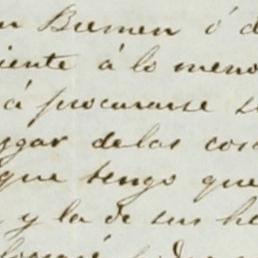 n Bremen ó d
iente á lo meno
á procurarse s
zgar de las cos
que tengo que
y la de sus he